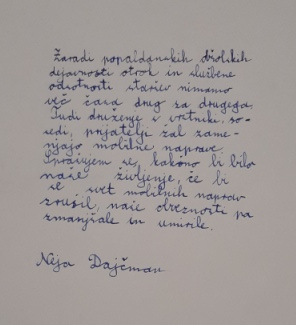 Zaradi popoldanskih šolskih
dejavnosti otrok in službene
odsotnosti staršev nimamo
več časa drug za drugega.
Tudi druženje z vrtniki, so-
sedi, prijatelji žal zame-
njajo mobilne naprave.
Sprašujem se, kakšno bi bilo
naše življenje, če bi
se svet mobilnih naprav
zrušil, naše obveznosti pa
zmanjšale in umirile.
Neja Dajčman